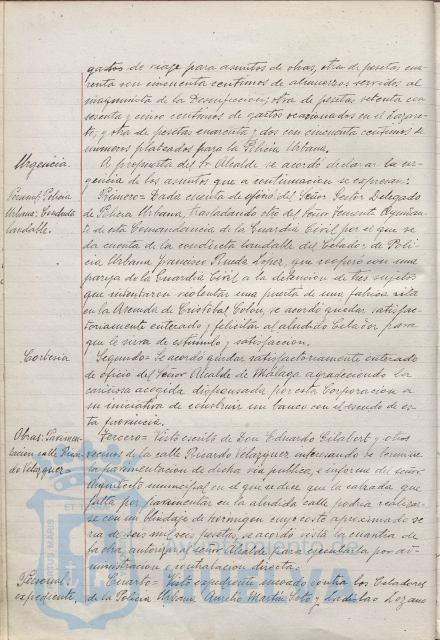 gastos de viaje para asuntos de obras, otra de pesetas cua-
renta con cincuenta centimos de almuerzos servidos al
maquinista de la Desinfeccion; otra de pesetas setenta con
sesenta y cinco centimos de gastos ocasionados en el Lazare-
to; y otra de pesetas cuarenta y dos con cincuenta centimos de
numeros plateados para la Policia Urbana.
Urgencia. A propuesta del Sr. Alcalde se acordó declarar la ur-
gencia de los asuntos que a continuacion se expresan:
Personal Policia Primero= Dada cuenta de oficio del Señor Gestor Delegado
Urbana: Conducta de Policia Urbana, trasladando otro del Señor Teniente Ayudan-
laudable. te de esta Comandancia de la Guardia Civil por el que se
da cuenta de la conducta laudable del Celador de Poli-
cia Urbana Francisco Rueda Lopez, que cooperó con una
pareja de la Guardia Civil a la detencion de tres sujetos
que intentaron violentar una puerta de una fabrica sita
en la Avenida de Cristobal Colon, se acordó quedar satisfac-
toriamente enterado y felicitar al aludido Celador para
que le sirva de estimulo y satisfaccion.
Cortesia Segundo= Se acordó quedar satisfactoriamente enterado
de oficio del Señor Alcalde de Málaga agradeciendo la
cariñosa acogida dispensada por esta Corporacion a
su iniciativa de construir un banco con el escudo de es-
ta provincia.
Obras: Pavimen- Tercero= Visto escrito de Don Eduardo Gilabert y otros
tacion calle Ricar- vecinos de la calle Ricardo Velazquez interesando se termine
do Velazquez la pavimentacion de dicha via publica, e informe del señor
Arquitecto municipal en el que se dice que la calzada que
falta por pavimentar en la aludida calle podria realizar-
se con un blindaje de hormigon cuyo costo aproximado se-
ra de seis mil seis pesetas, se acordó vista la cuantia de
la obra, autorizar al señor Alcalde para ejecutarla por ad-
ministracion o contratacion directa.
Personal Cuarto= Visto expediente incoado contra los Celadores
expediente, de la Policia Urbana Aurelio Martin Soto y Ladislao Lozano